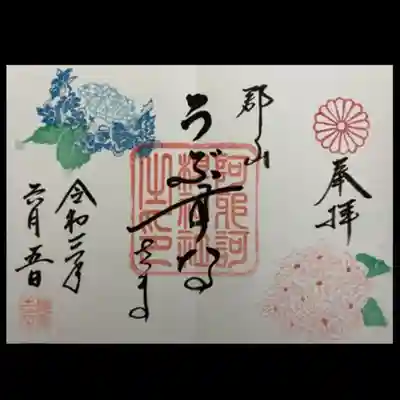 奉拝
郡山
うぶすな
さま
阿邪訶
根神社
之印
令和三年
六月五日